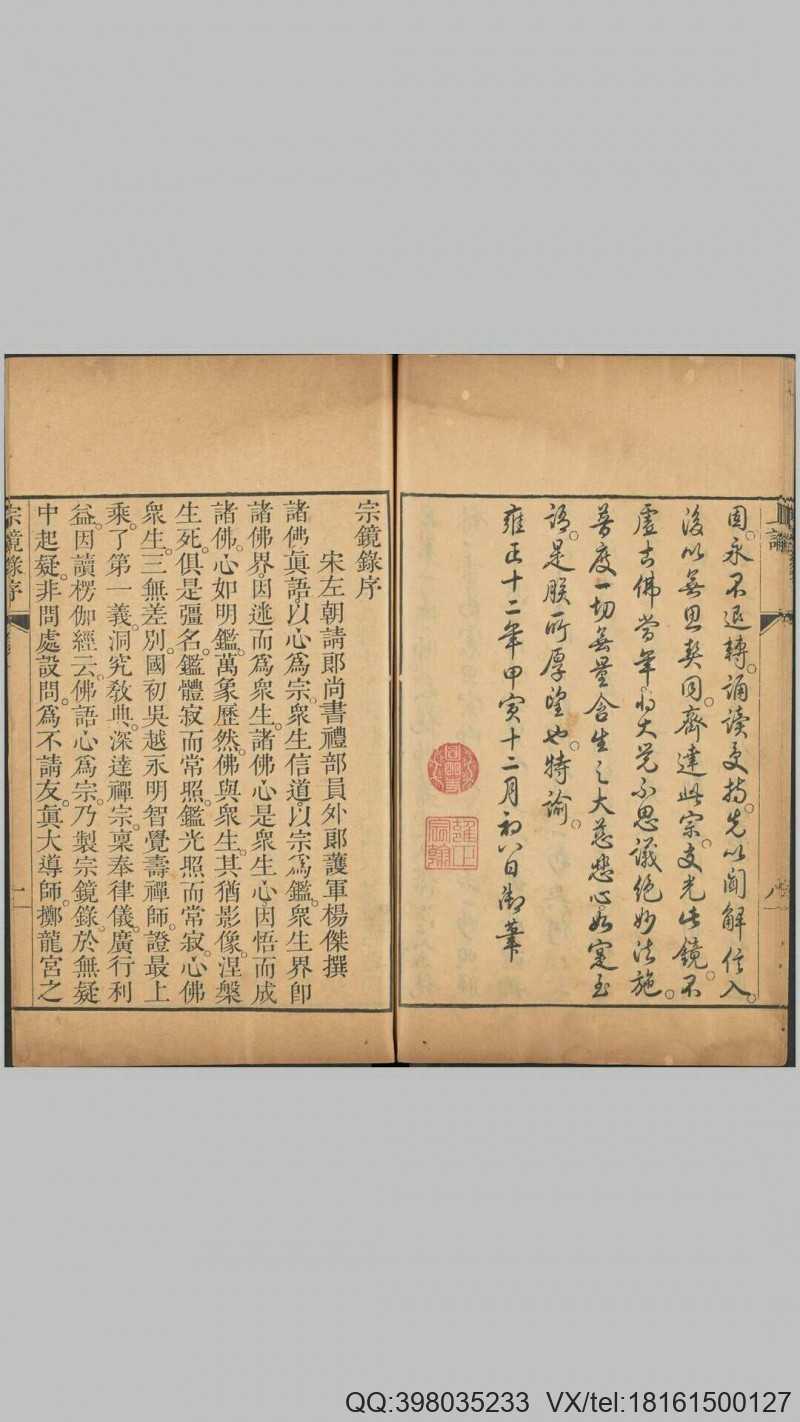 上諭
八
因。永不退轉。誦讀受持。先以聞解信入。
後以無思契同。齊達此宗。交光此鏡。不
虛古佛當年以大覺不思議絕妙法施。
普度一切無量含生之大慈悲心如寔至
語。是朕所厚望也。特諭。
雍正十二年甲寅十二月初八日御筆
雍正
宸翰
宗鏡錄序
宋左朝請郎尚書禮部員外郎護軍楊傑撰
諸佛眞語。以心爲宗。衆生信道。以宗爲鑑。衆生界卽
諸佛界。因迷而爲衆生。諸佛心是衆生心。因悟而成
諸佛。心如明鑑。萬象歷然。佛與衆生。其猶影像。涅槃
生死。俱是彊名。鑑體寂而常照。鑑光照而常寂。心佛
衆生。三無差別。國初吳越永明智覺壽禪師。證最上
乘。了第一義。洞究敎典。深達禪宗。稟奉律儀。廣行利
益。因讀楞伽經云。佛語心爲宗。乃製宗鏡錄。於無疑
中起疑。非問處設問。爲不請友。眞大導師。擲龍宮之
宗鏡錄序
一
QQ:398035233 VX/tel:18161500127